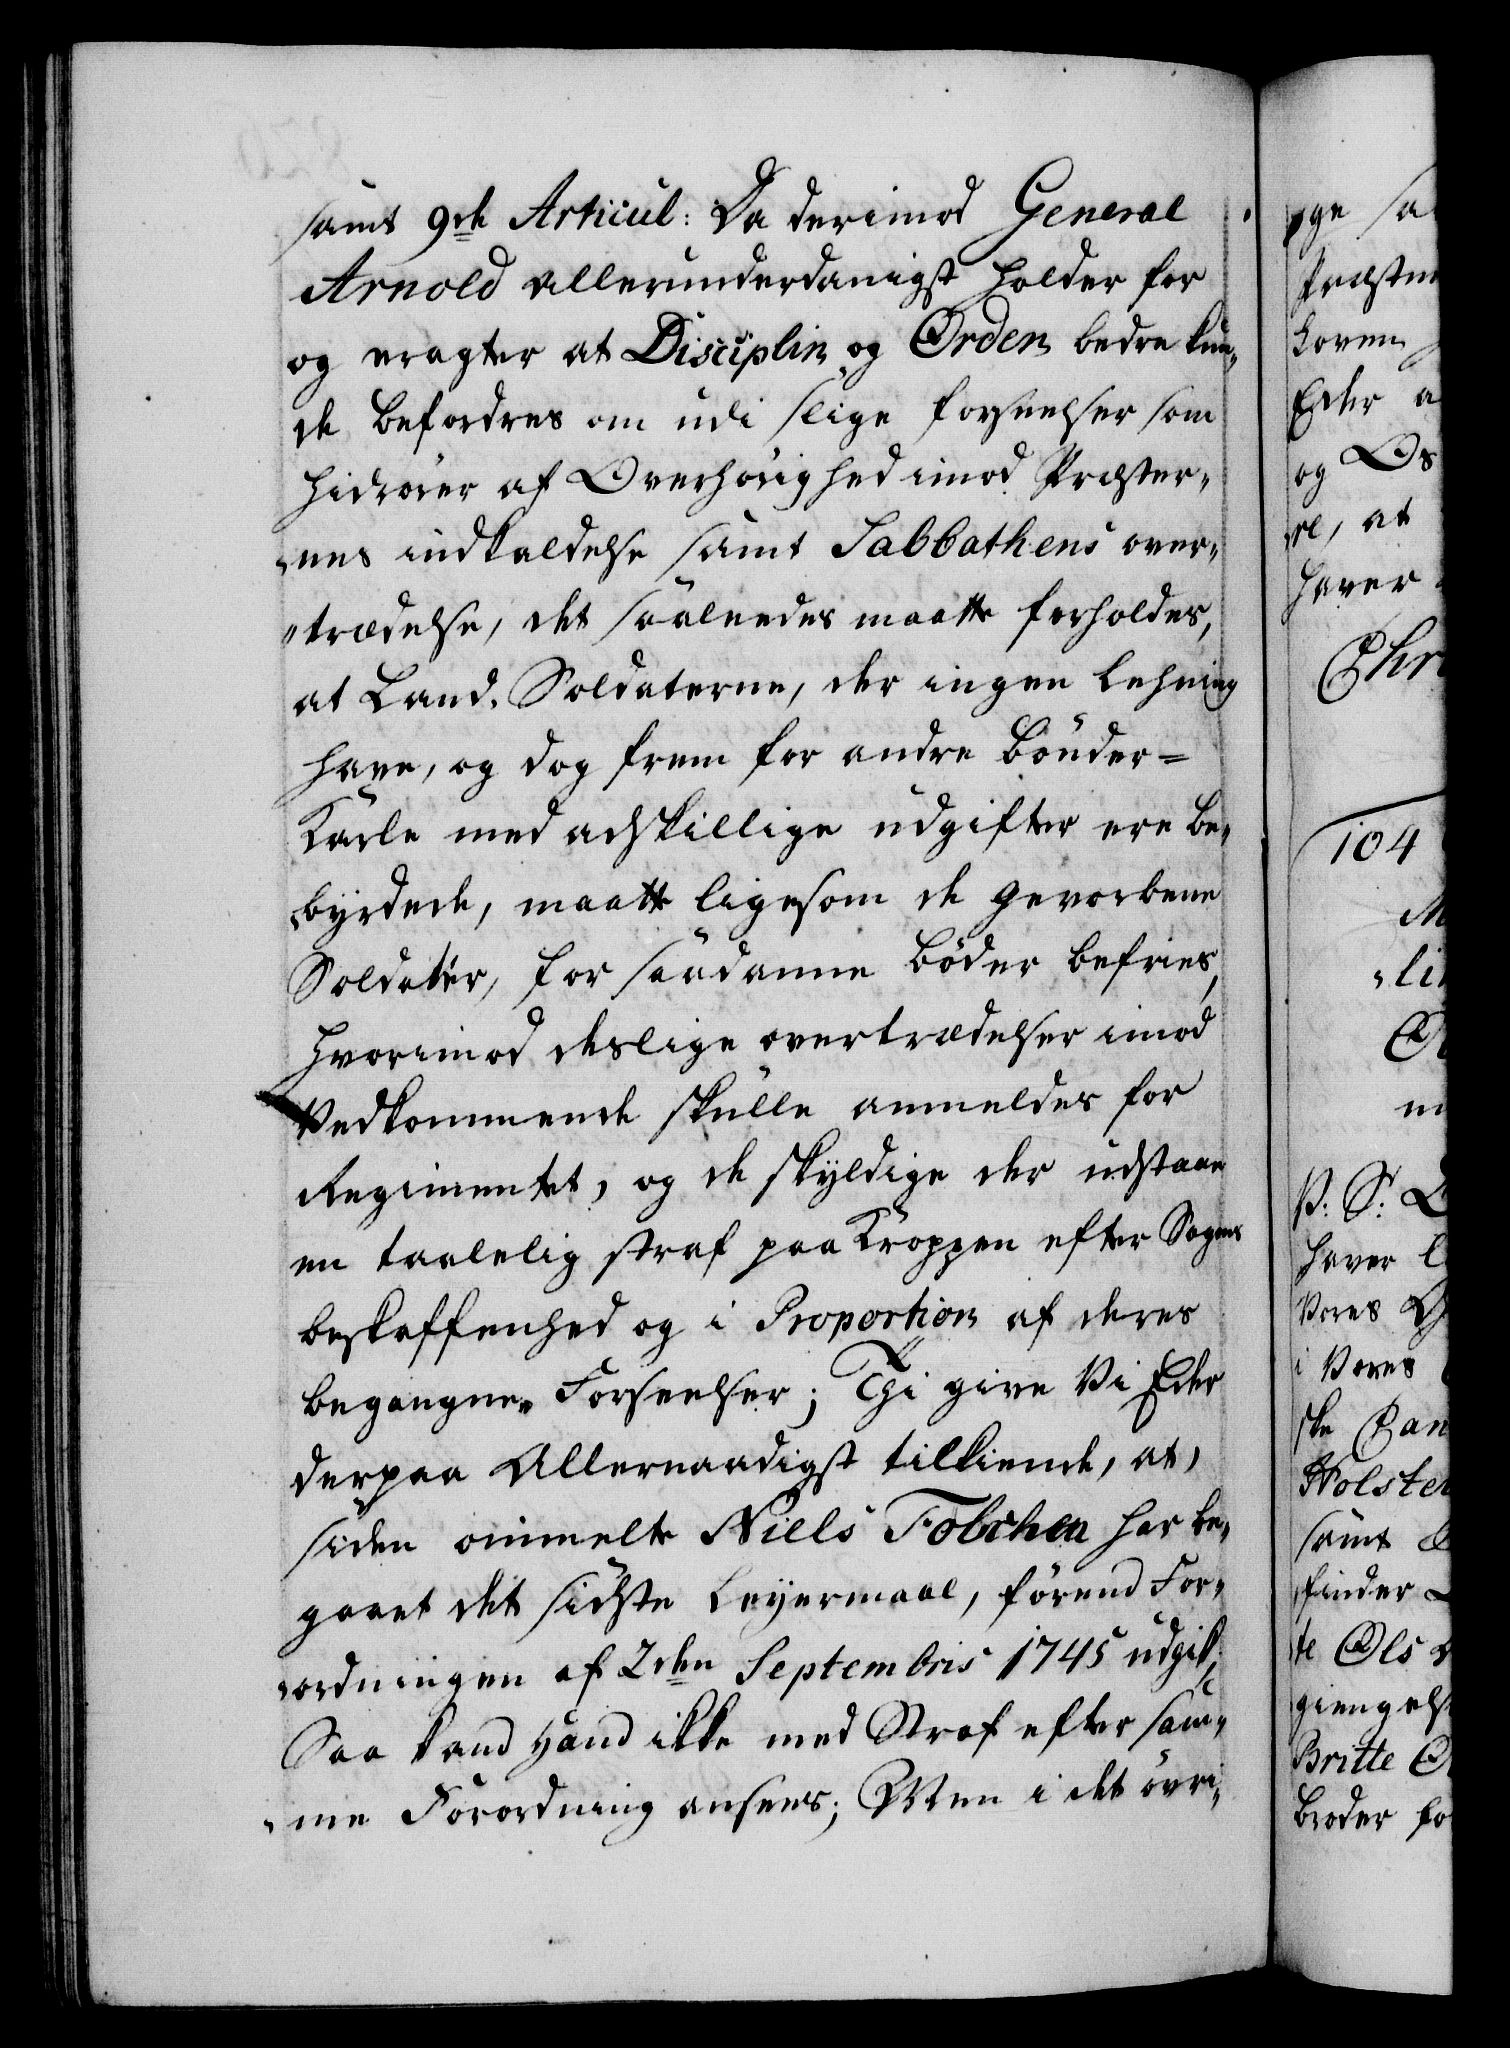 samt 9de Articul: Da derimod General
Arnold allerunderdanigst holder for
og eragter at Disciplin og Orden bedre kun„
de befordres om udi slige forseelser som
hidrører af Overhørighed imod Præster„
„nes indkaldelse samt Sabbathens over„
„trædelse, det saaledes maatte forholdes,
at Land-Soldaterne, der ingen Lehning
have, og dog frem for andre Bønder=
Karle med adskillige udgifter ere be„
„byrdede, maatte ligesom de gevorbene
Soldater, for saadanne bøder befries,
hvorimod deslige overtrædelser imod
Vedkommende skulle anmeldes for
Regimentet, og de skyldige der udstaae
en taalelig straf paa Kroppen efter Sagens
beskaffenhed og i Proportion af deres
begangne Forseelser; Thi give Vi Eder
derpaa Allernaadigst tilkiende, at,
siden ommelte Niels Tobchen har be„
gaaet det sidste Leyermaal, førend For„
„ordningen af 2den Septembris 1745 udgik,
Saa kand hand ikke med Straf efter sam„
„me Forordning ansees; Men i det øvri„
ge sa
Præstne
Loven
Eder a
og Os
re, at
haver
Chri
104
M
„lin
O
m
V: S:
haver
Vores
i Vores
ske Can
Holsten
samt
finder
te Ols
giengels
Britte O
broder fo